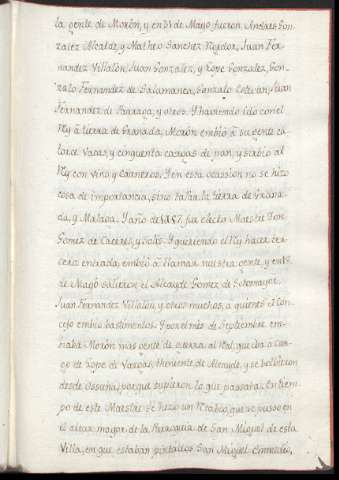 la gente de Morón, y en 31 de Mayo fueron Andres Gon-
zalez Alcalde, y Matheo Sanchez Regidor, Juan Fer-
nandez Villalon, Juan Gonzalez, y Lope Gonzalez, Gon-
zalo Fernandez de Salamanca, Gonzalo Estevan, Juan
Fernandez de Parraga, y otros. Y haviendo ido con el
Rey à tierra de Granada, Morón embió à su gente ca-
torce Vacas, y cinquenta cargas de pan, y sirbio al
Rey con vino y carneros. Y en esta ocassion no se hizo
cosa de importancia, sino talar la tierra de Grana-
da, y Malaga. Y año de 1457. fue electo Maestre Don
Gomez de Caceres, y Solis. Y queriendo el Rey hacer ter-
cera entrada, embió à llamar nuestra gente, y en 15.
de Mayo salieron el Alcayde Gomez de Sotomayor,
Juan Fernandez Villalon, y otros muchos, a quienes el Con-
cejo embio bastimentos. Y por el mes de Septiembre em-
biaba Morón mas gente de guerra al Rey, que iba a car-
go de Lope de Vargas, theniente de Alcayde, y se bolbieron
desde Ossuna, porque supieron lo que passaba. En tiem-
po de este Maestre se hizo un Retablo, que se pusso en
el altar mayor de la Parroquia de San Miguel de esta
Villa, en que estaban pintados San Miguel en medio,